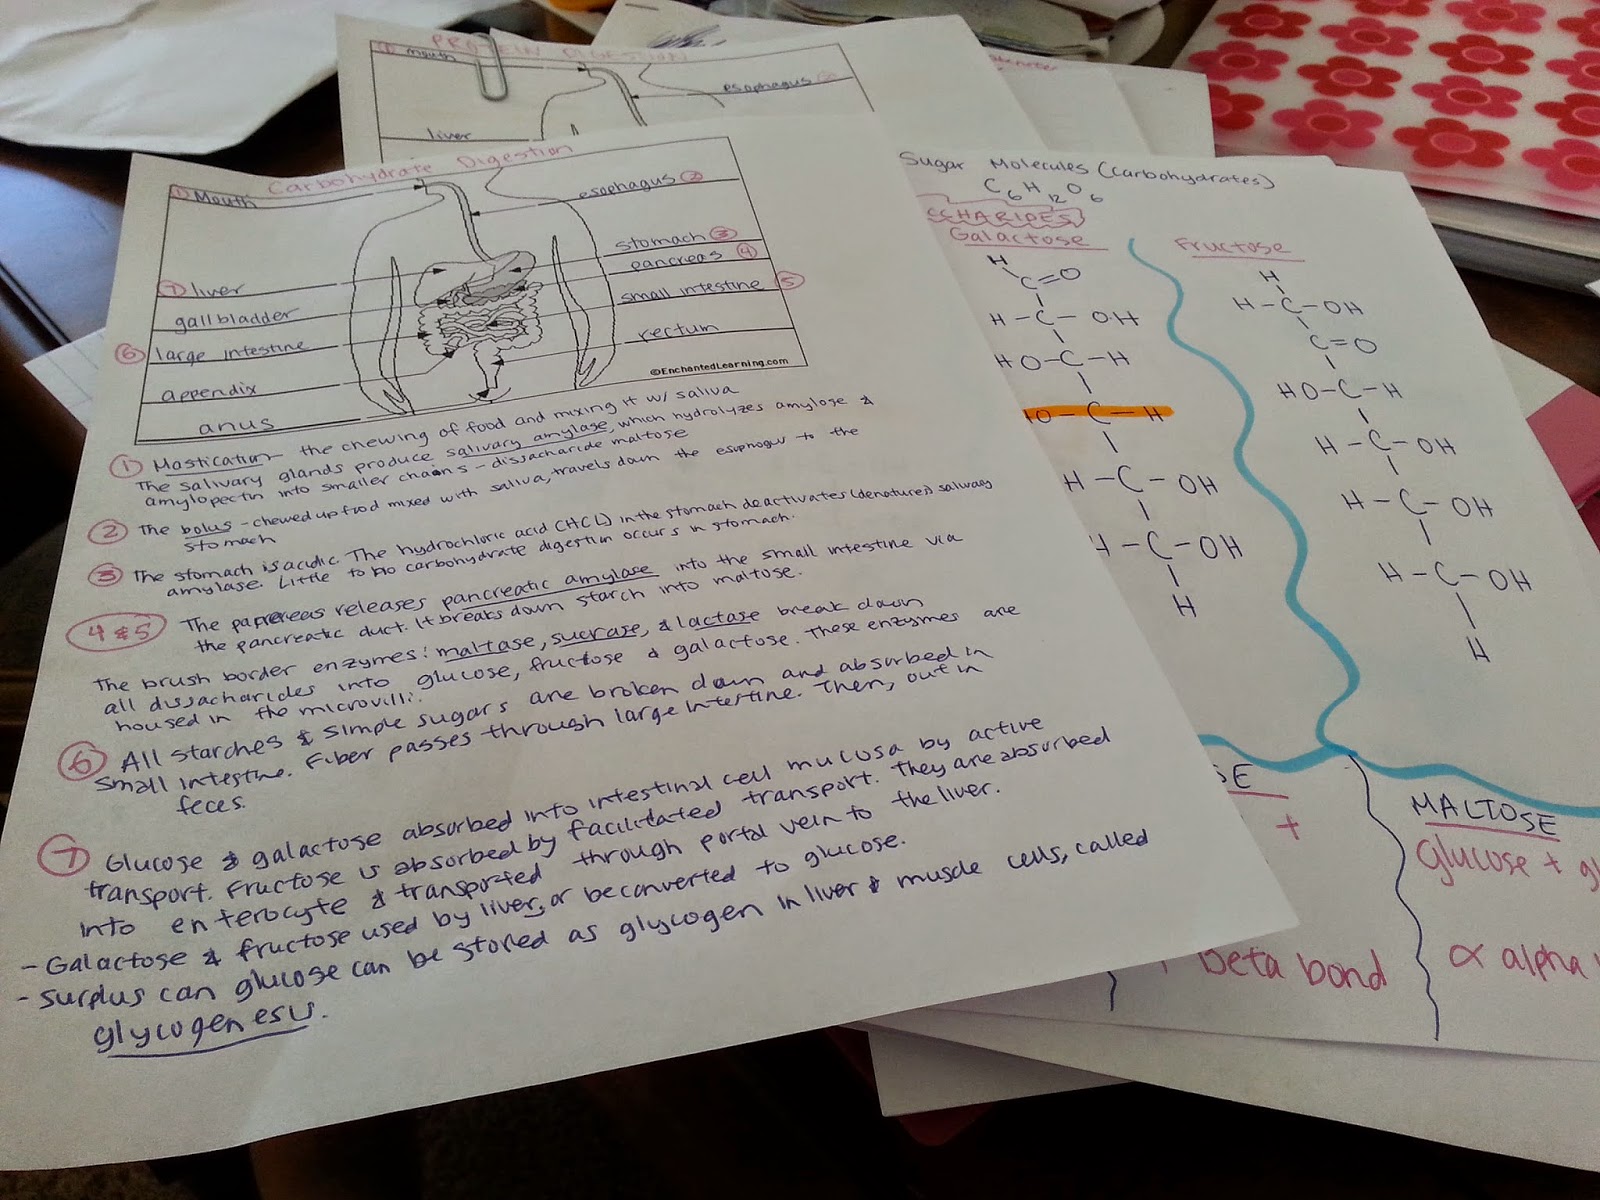 PROTEIN DIGESTION
① Mouth
esophagus ②
liver
Carbohydrate Digestion
① Mouth
esophagus ②
stomach ③
pancreas ④
⑦ liver
small intestine ⑤
gallbladder
rectum
⑥ large intestine
©EnchantedLearning.com
appendix
anus
① Mastication - the chewing of food and mixing it w/ saliva
The salivary glands produce salivary amylase, which hydrolyzes amylose &
amylopectin into smaller chains - dissacharide maltose
② The bolus - chewed up food mixed with saliva, travels down the esophagus to the
stomach
③ The stomach is acidic. The hydrochloric acid (HCL) in the stomach deactivates (denatures) salivary
amylase. Little to no carbohydrate digestion occurs in stomach.
4 & 5 The pancreas releases pancreatic amylase into the small intestine via
the pancreatic duct. It breaks down starch into maltose.
The brush border enzymes: maltase, sucrase, & lactase break down
all dissacharides into glucose, fructose & galactose. These enzymes are
housed in the microvilli.
⑥ All starches & simple sugars are broken down and absorbed in
small intestine. Fiber passes through large intestine. Then, out in
feces.
⑦ Glucose & galactose absorbed into intestinal cell mucosa by active
transport. Fructose is absorbed by facilitated transport. They are absorbed
into enterocyte & transported through portal vein to the liver.
- Galactose & fructose used by liver, or be converted to glucose.
- surplus can glucose can be stored as glycogen in liver & muscle cells, called
glycogenesis.
Sugar Molecules (carbohydrates)
C6 H12 O6
CCHARIDES
Galactose
H
C=O
H-C-OH
HO-C-H
HO-C-H
H-C-OH
H-C-OH
H
Fructose
H
H-C-OH
C=O
HO-C-H
H-C-OH
H-C-OH
H-C-OH
H
SE
+
Beta bond
MALTOSE
Glucose + gl
∝ alpha